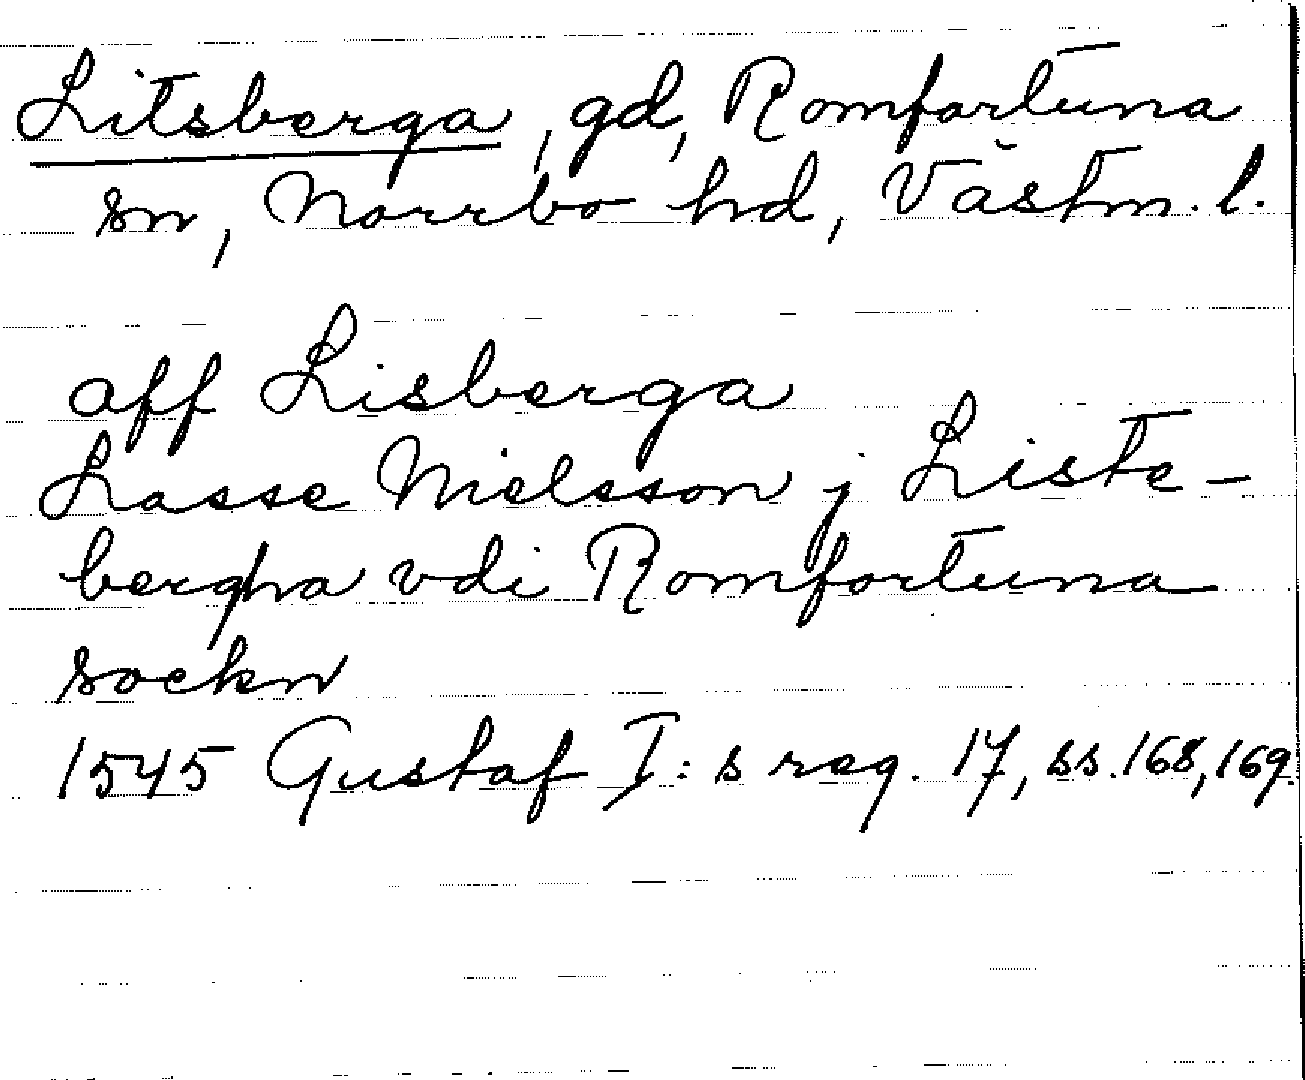 Litsberga, gd, Romfartuna
sn, Norrbo hd, Västm. l.
aff Lisberga
Lasse Nielsson j Liste-
bergha vdi Romfortuna
sockn
1545 Gustaf I:s reg. 17, ss. 168, 169.